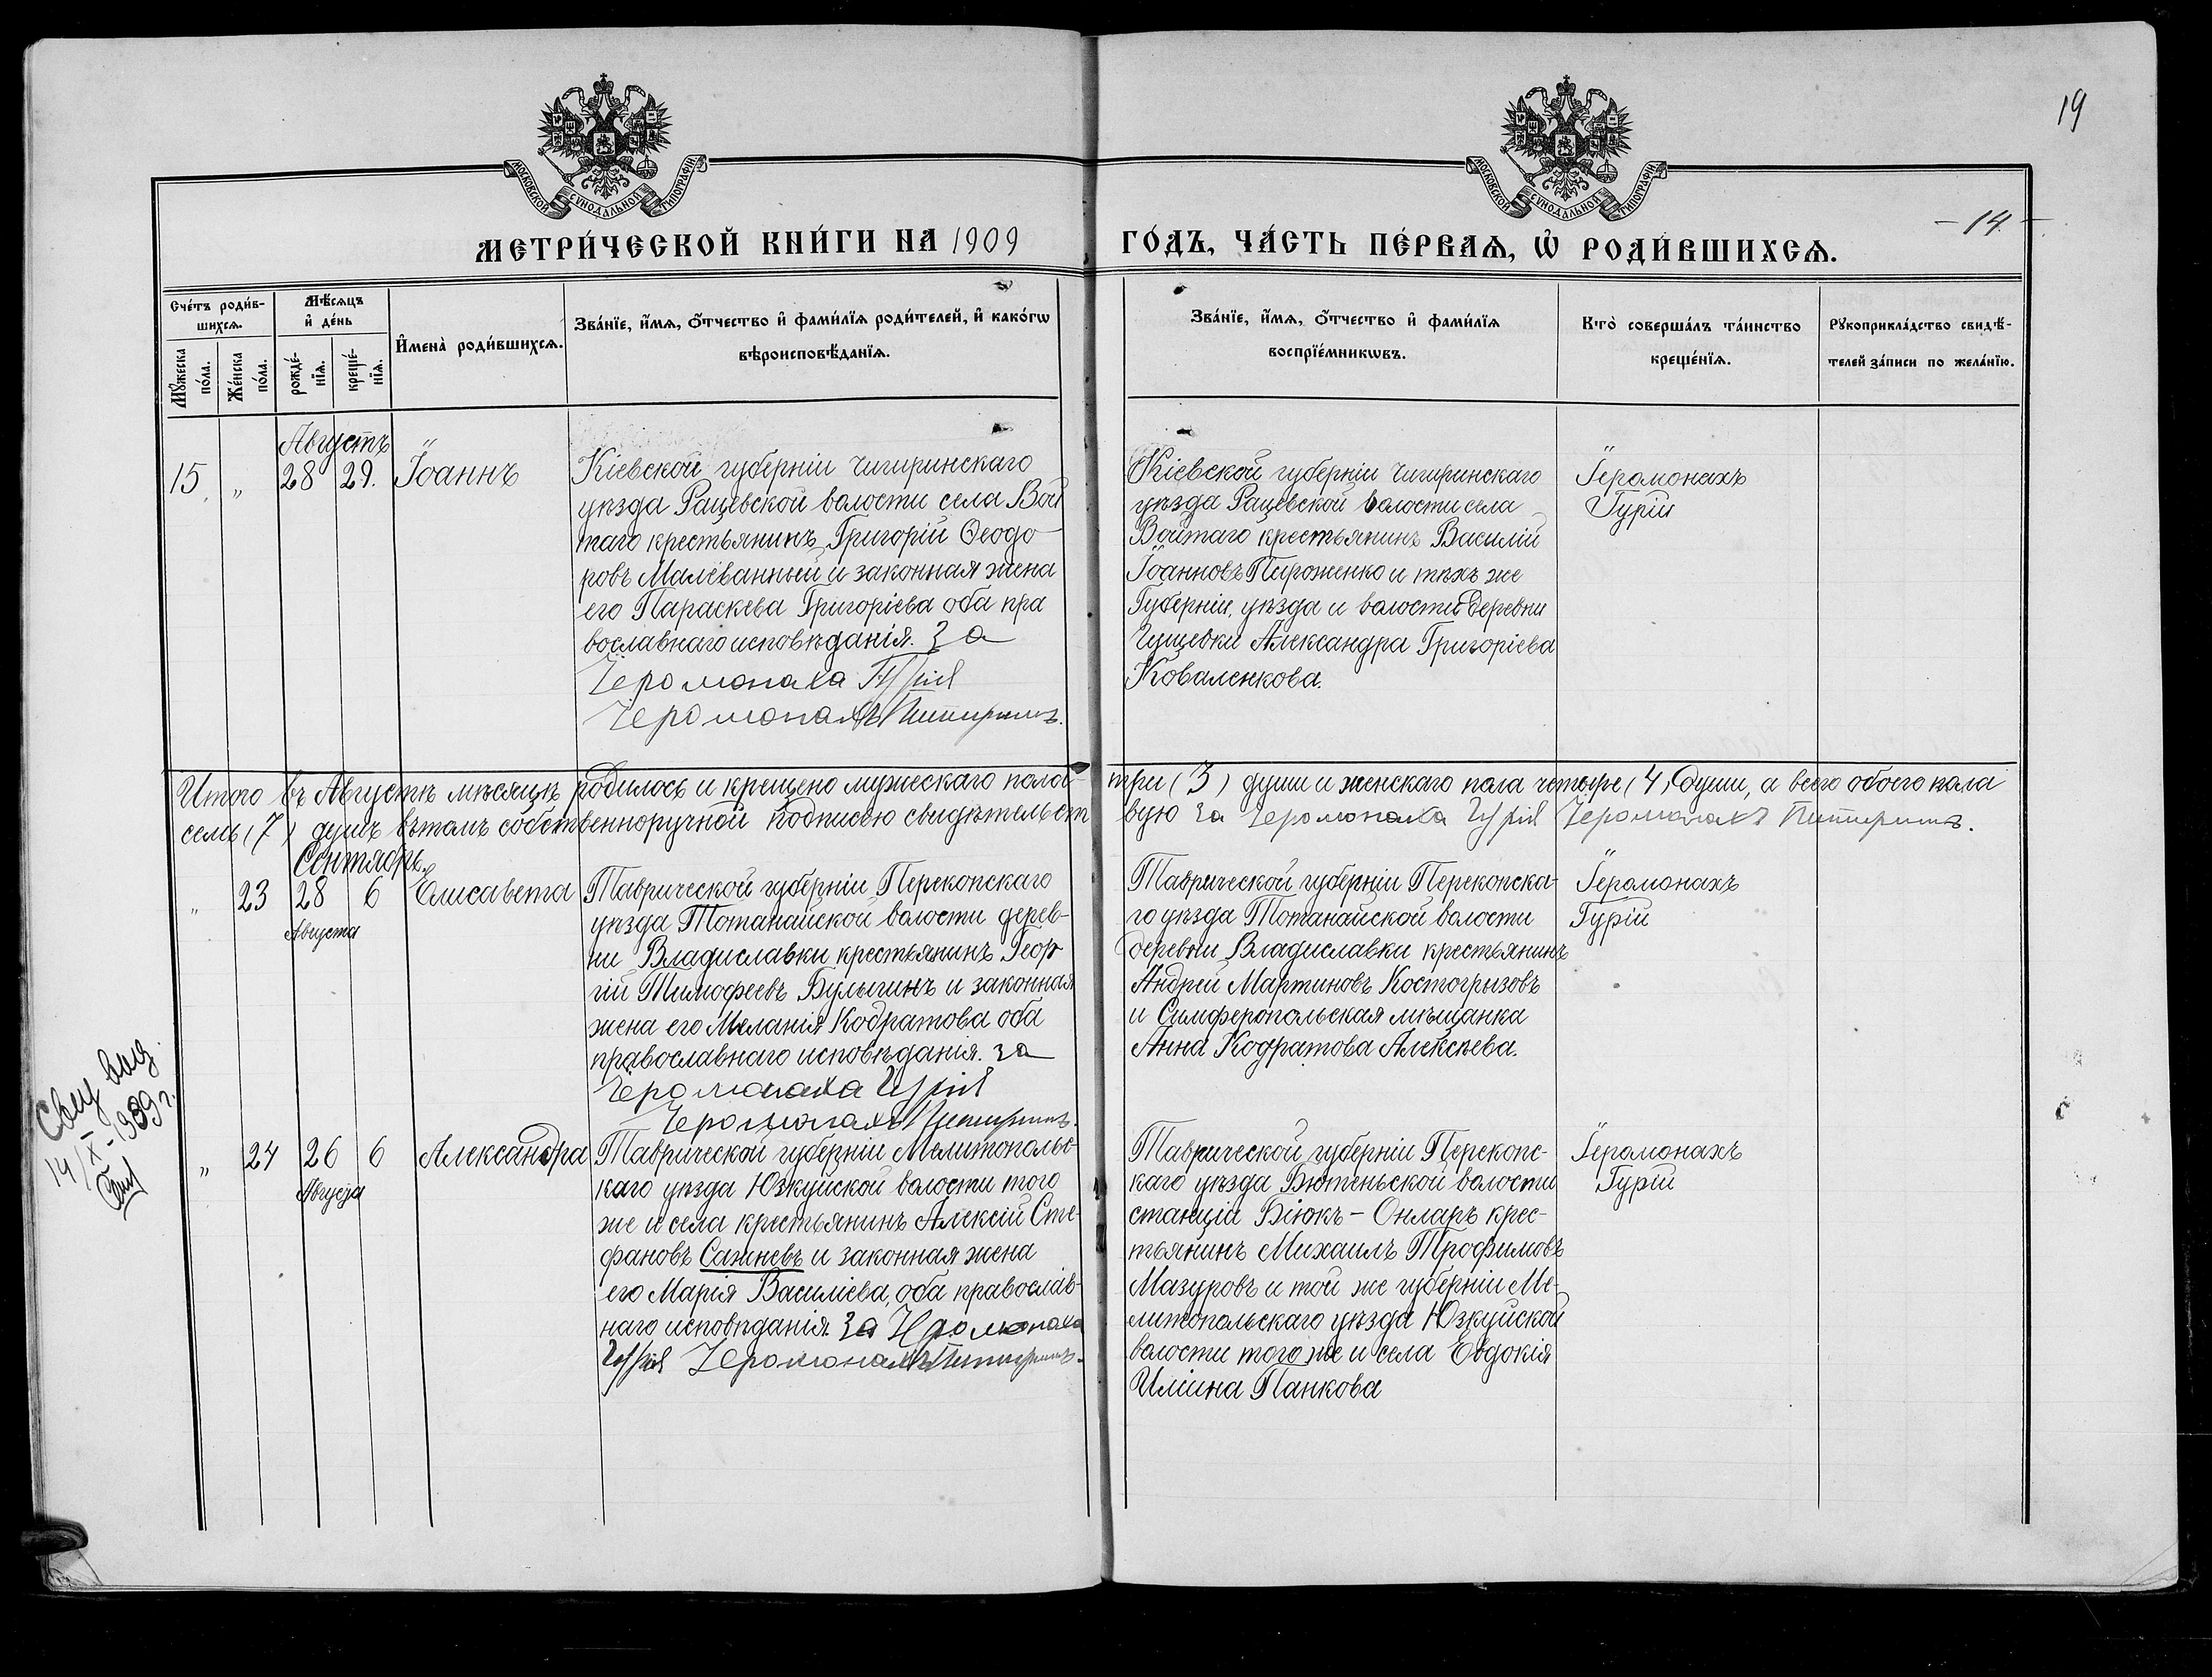 19
- 14. -
МОСКОВСКОЙ СѴНОДАЛЬНОЙ ТИПОГРАФІИ
МОСКОВСКОЙ СѴНОДАЛЬНОЙ ТИПОГРАФІИ
МЕТРИ́ЧЕСКОЙ КНИ́ГИ НА 1909 ГО́ДЪ, ЧА́СТЬ ПЕ́РВАѦ, Ѽ РОДИ́ВШИХСѦ.
Сче́тъ роди́в-
шихсѧ.
Мꙋ́жеска по́ла.
Же́нска по́ла.
Мѣ́сѧцъ
и҆ де́нь
рожде́-
нїѧ.
креще́-
нїѧ.
И҆мена̀ роди́вшихсѧ.
Зва́нїе, и҆́мѧ, ѻ҆́тчество и҆ фами́лїѧ роди́телей, и҆ како́гѡ
вѣроисповѣ́данїѧ.
Зва́нїе, и҆́мѧ, ѻ҆́тчество и҆ фами́лїѧ
воспрїе́мникѡвъ.
Кто̀ соверша́лъ та́инство
креще́нїѧ.
Рꙋкоприкла́дство свидѣ́-
телей за́писи по жела́нїю.
Августъ
15. " 28 29. Іоаннъ
Кіевской губерніи Чигиринскаго
уѣзда Рацевской волости села Вой
таго крестьянинъ Григорій Ѳеодо-
ровъ Малёванный и законная жена
его Параскева Григоріева оба пра
вославнаго исповѣданія. За
Іеромонаха Гурія
Іеромонахъ Питиримъ.
Кіевской губерніи Чигиринскаго
уѣзда Рацевской волости села
Войтаго крестьянинъ Василій
Іоанновъ Пироженко и тѣхъ же
Губерніи, уѣзда и волости деревни
Александра Григоріева
Коваленкова.
Іеромонахъ
Гурій
Итого въ Августѣ мѣсяцѣ родилось и крещено мужескаго пола - три (3) души и женскаго пола четыре (4) души, а всего обоего пола
семь (7) душъ въ томъ собственноручной подписью свидѣтельст вую За Іеромонаха Гурія Іеромонахъ Питиримъ.
Сентябрь
" 23 28 6 Елисавета
Августа
Таврической губерніи Перекопскаго
уѣзда Тотанайской волости дерев-
ни Владиславки крестьянинъ Геор
гій Тимофеевъ Булыгинъ и законная
жена его Меланія Кодратова оба
православнаго исповѣданія. за
Іеромонаха Гурія
Іеромонахъ Питиримъ.
Таврической губерніи Перекопска-
го уѣзда Тотанайской волости
деревни Владиславки крестьянинъ
Андрей Мартиновъ Костогрызовъ
и Симферопольская мѣщанка
Анна Кодратова Алексѣева.
Іеромонахъ
Гурій
Свид выд.
14/X-1939 г.
" 24 26 6 Александра
Августа
Таврической губерніи Мелитопольс-
каго уѣзда Юзкуйской волости того
же и села крестьянинъ Алексій Сте-
фановъ Сажневъ и законная жена
его Марія Василіева, оба православ-
наго исповѣданія. За Іеромонаха
Гурія Іеромонахъ Питиримъ.
Таврической губерніи Перекопс-
каго уѣзда Бютеньской волости
станціи Біюкъ - Онларъ крес-
тьянинъ Михаилъ Трофимовъ
Мазуровъ и той же губерніи Ме-
литопольскаго уѣзда Юзкуйской
волости того же и села Евдокія
Иліина Панкова
Іеромонахъ
Гурій